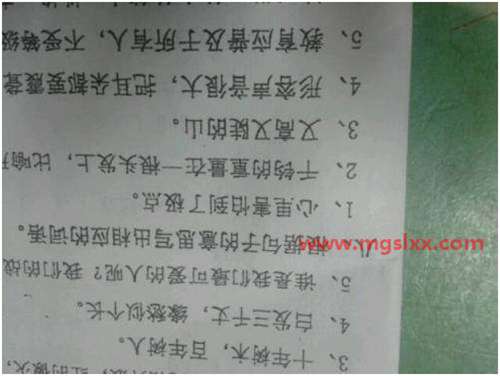 红的像火，
3、十年树木，百年树人。
4、白发三千丈，缘愁似个长。
5、谁是我们最可爱的人呢？我们的战
八、根据句子的意思写出相应的词语。
1、心里害怕到了极点。
2、千钧的重量在一根头发上，比喻
3、又高又陡的山。
4、形容声音很大，把耳朵都要震聋
5、教育应普及于所有人，不受等级
www.mgslxx.com